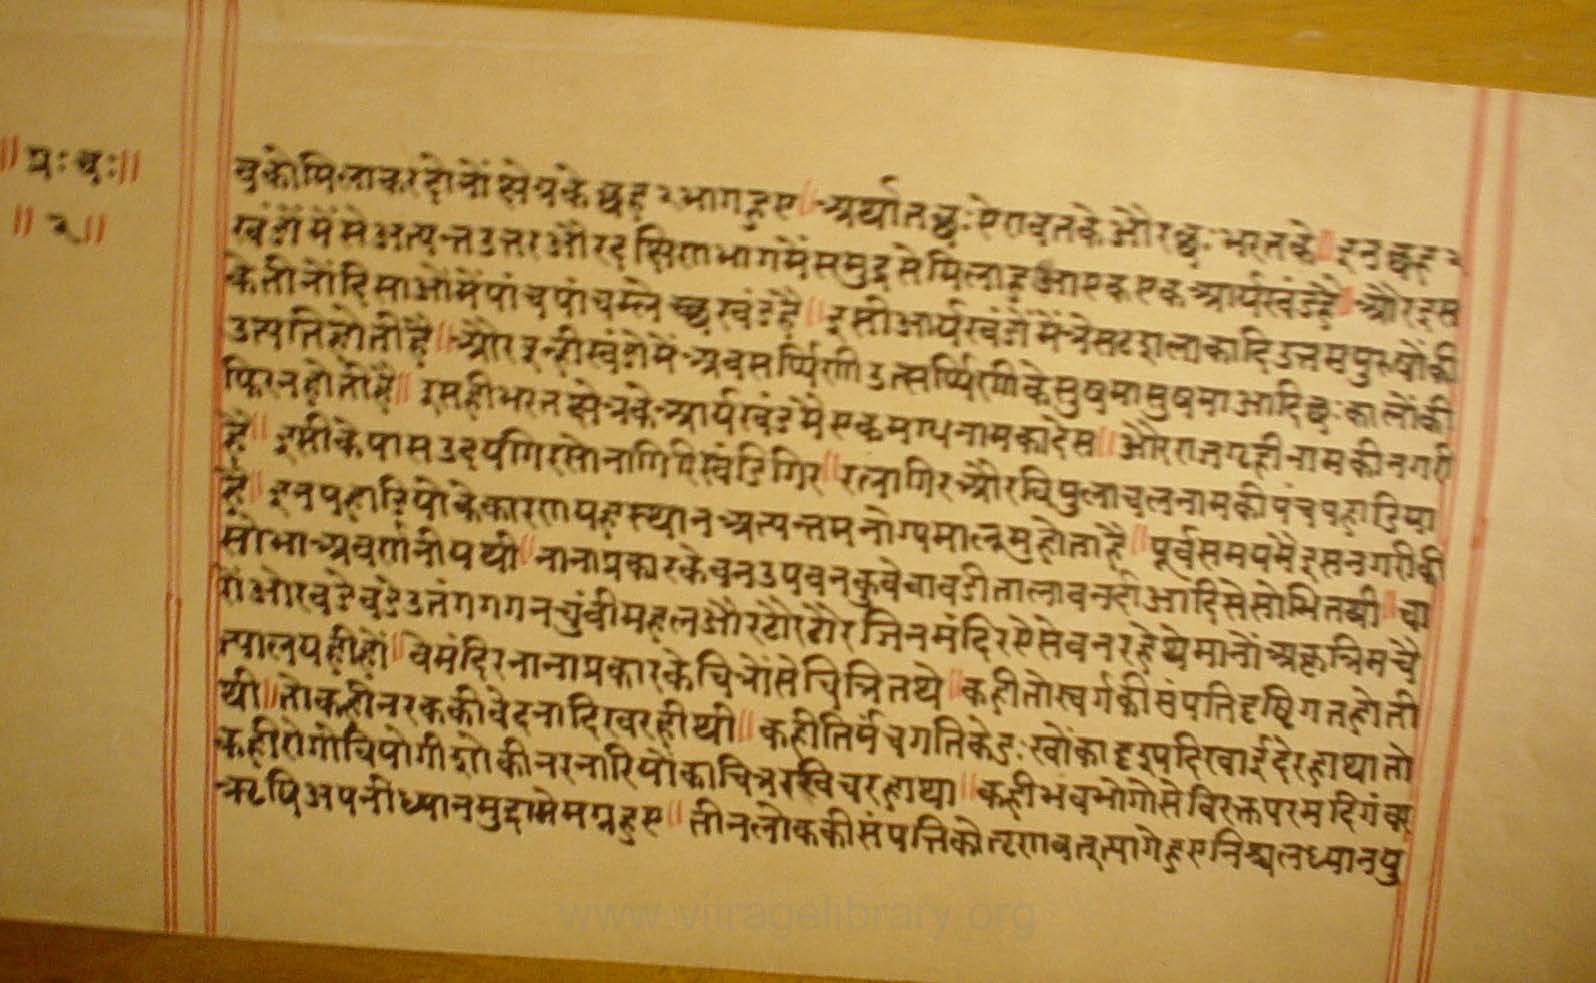 ॥ प्रः चः॥
॥ २॥
वको मिलाकर दोनों क्षेत्रके छह २ भाग हुए॥ अर्थात् छः ऐरावतके और छः भरतके॥ इन छह २
खंडों में से अत्यन्त उत्तर और दक्षिण भाग में समुद्र से मिला हुआ एक एक आर्यखंड है॥ और इस
के तीनों दिसाओं में पांच पांच म्लेच्छ खंड है॥ इसी आर्यखंडों में त्रेसट शलाकादि उत्तम पुरुषों की
उत्पत्ति होती है॥ और इन्ही खंडों में अवसर्प्पिणी उत्सर्प्पिणी के सुषमा सुषमा आदि छः कालों की
फिरन होती है॥ इसही भरत क्षेत्रके आर्यखंड मै एक मगध नामका देस॥ और राजगृही नामकी नगरी
है॥ इसीके पास उदयगिर सोनागिरि खंडिगिर॥ रत्नागिर और विपुलाचल नामकी पंच पहाडिया
है॥ इन पहाडियो के कारण यह स्थान अत्यन्त मनोग्य मालूम होता है॥ पूर्व समयमै इस नगरी की
सोभा अवर्णनीय थी॥ नाना प्रकार के वन उपवन कुवे बावडी तालाव नदी आदि से सोभित थी॥ चा
रों ओर बडे बडे उतंग गगन चुंवी महल और ठौर ठौर जिन मंदिर ऐसे बन रहे थे मानों अकृत्रिम चै
त्यालय ही हों॥ वे मंदिर नाना प्रकार के चित्रों से चित्रित थे॥ कही तो स्वर्ग की संपति दृष्टिगत होती
थी॥ तो कही नरक की वेदना दिख रही थी॥ कही तिर्यंचगति के दुःखों का दृश्य दिखाई दे रहा था तो
कही रोगी वियोगी शोकी नर नारियों का चित्र खिच रहा था॥ कही भव भोगो से विरक्त परम दिगंवर
ऋषि अपनी ध्यान मुद्रा मे मग्न हुए॥ तीन लोक की संपत्ति को तृणवत् त्यागे हुए निश्चल ध्यान यु
www.vitragelibrary.org